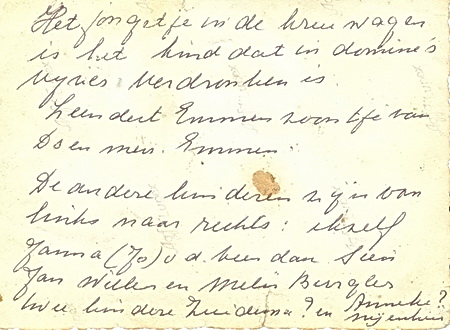 Het jongetje in de kruiwagen
is het kind dat in dominé's
vijver verdronken is.
Leendert Emmen zoontje van
Do en men. Emmen.
De andere kinderen zijn van
links naar rechts: ikzelf
Janna (Jo) v d. veen dan Sien
Jan Willem en Melis Burgler
twee kindere Zuidema? en Anneke?
Nijenhuis